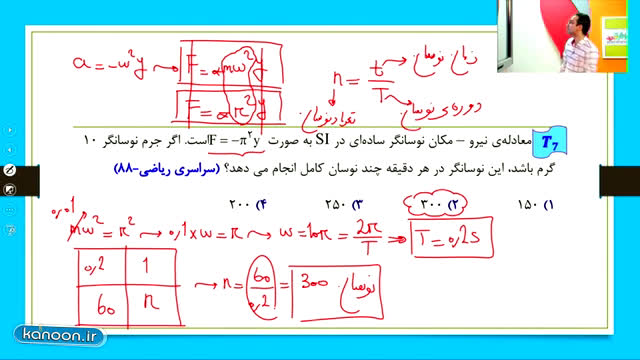 a = -ω²y → F = -mω²y
F = -π²y
n = t/T
زمان نوسان
دوره‌ی نوسان
تعداد نوسان
T7
معادله‌ی نیرو – مکان نوسانگر ساده‌ای در SI به صورت F = -π²y است. اگر جرم نوسانگر ۱۰
گرم باشد، این نوسانگر در هر دقیقه چند نوسان کامل انجام می دهد؟ (سراسری ریاضی-۸۸)
۱) ۱۵۰ ۲) ۳۰۰ ۳) ۲۵۰ ۴) ۲۰۰
0,01
mω² = π² → 0,1×ω = π → ω = 10π = 2π/T ⇒ T = 0,2s
0,2 1
60 n
→ n = 60/0,2 = 300 نوسان
kanoon.ir